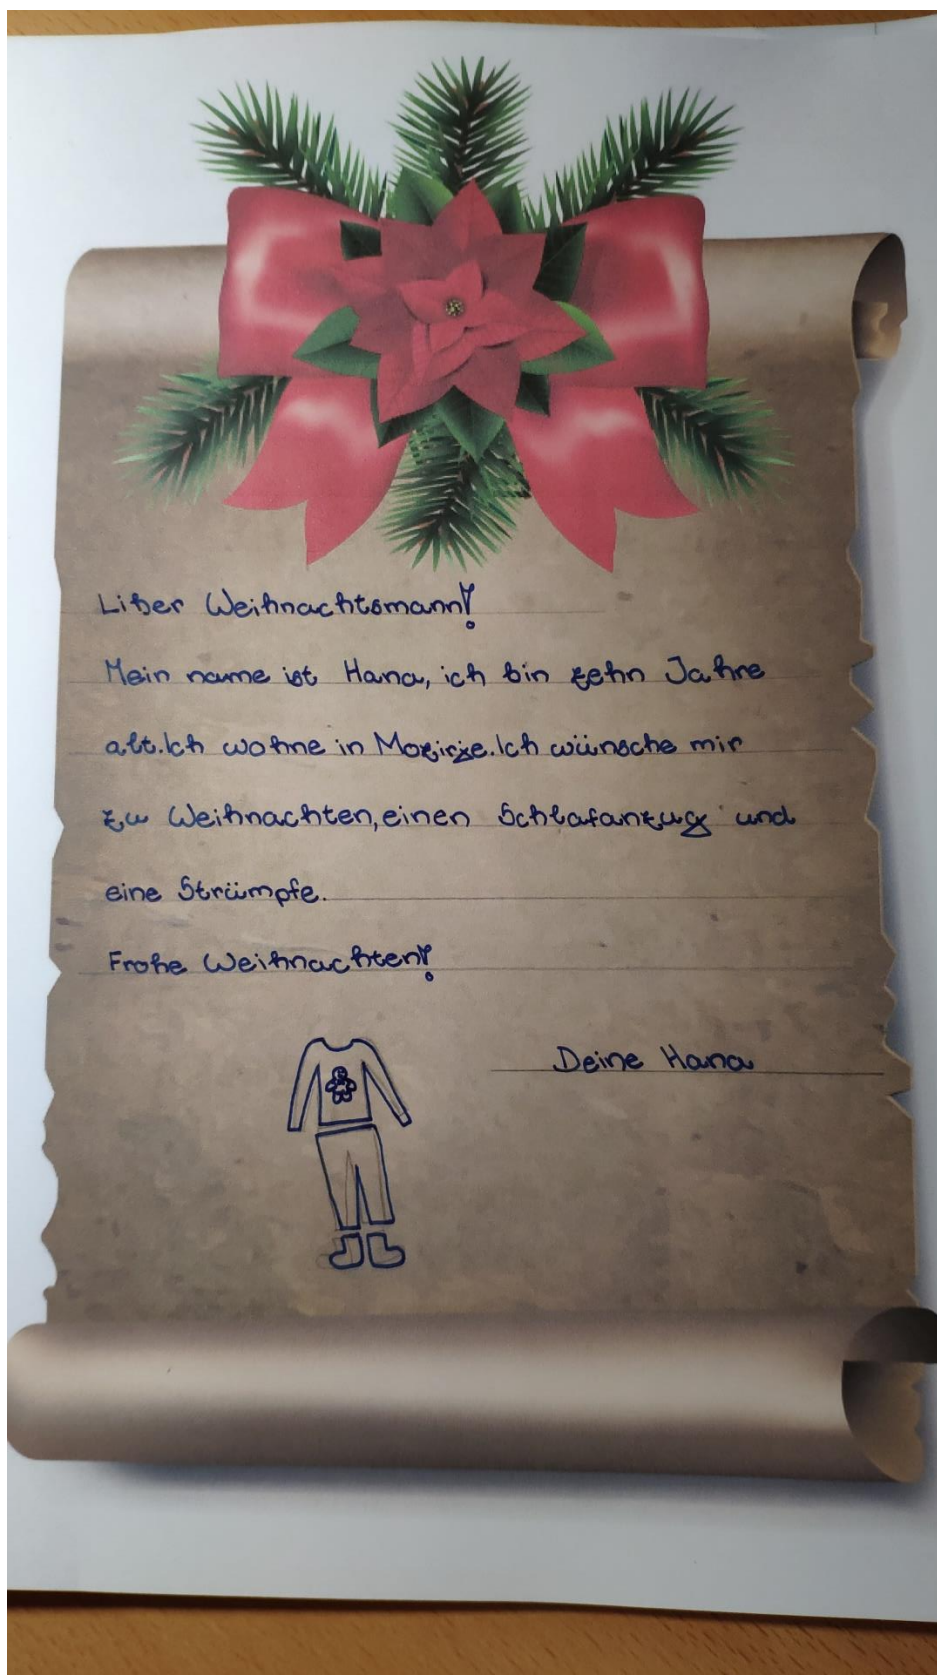 Liber Weihnachtsmann!
Mein name ist Hana, ich bin zehn Jahre
alt. Ich wohne in Mozirje. Ich wünsche mir
zu Weihnachten, einen Schlafanzug und
eine Strümpfe.
Frohe Weihnachten!
Deine Hana